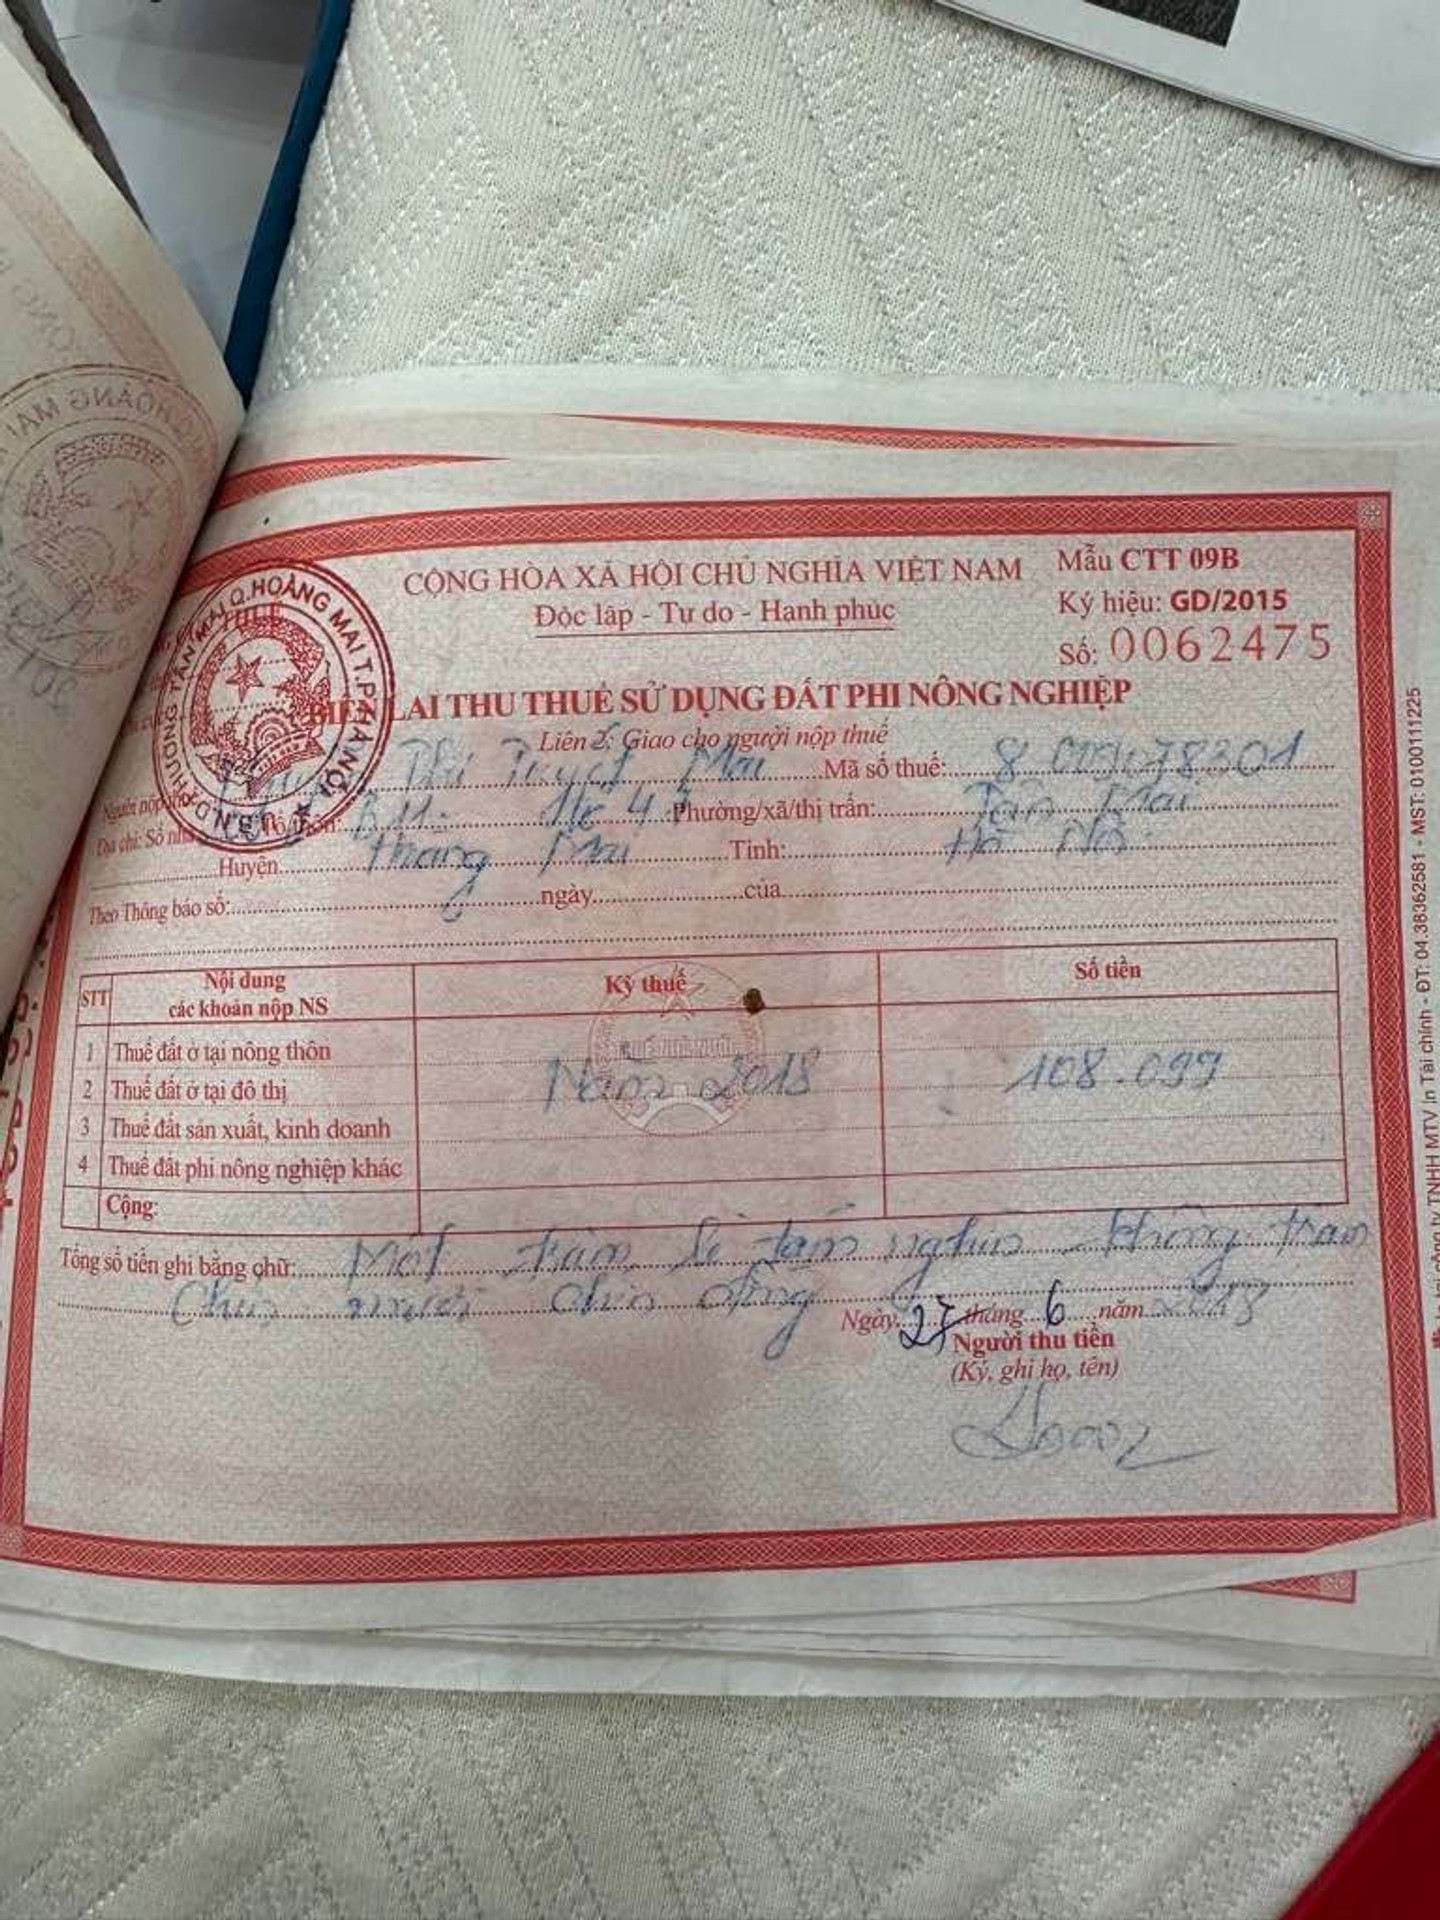 CỘNG HÒA XÃ HỘI CHỦ NGHĨA VIỆT NAM
Độc lập - Tự do - Hạnh phúc
Mẫu CTT 09B
Ký hiệu: GD/2015
Số: 0062475
U.B.N.D PHƯỜNG TÂN MAI Q.HOÀNG MAI T.P HÀ NỘI
BIÊN LAI THU THUẾ SỬ DỤNG ĐẤT PHI NÔNG NGHIỆP
Liên 2: Giao cho người nộp thuế
Người nộp Thị Tuyết Mai Mã số thuế:
Địa chỉ: Số nhà Tổ/thôn: Phường/xã/thị trấn: Tân Mai
Huyện Hoàng Mai Tỉnh: Hà Nội
Theo Thông báo số: ngày của
STT Nội dung các khoản nộp NS Kỳ thuế Số tiền
1 Thuế đất ở tại nông thôn
2 Thuế đất ở tại đô thị Năm 2018 108.099
3 Thuế đất sản xuất, kinh doanh
4 Thuế đất phi nông nghiệp khác
Cộng:
Tổng số tiền ghi bằng chữ: Một trăm lẻ tám nghìn không trăm
Chín mươi chín đồng
Ngày 27 tháng 6 năm 2018
Người thu tiền
(Ký, ghi họ, tên)
In tại công ty TNHH MTV In Tài chính - ĐT: 04.38362581 - MST: 0100111225